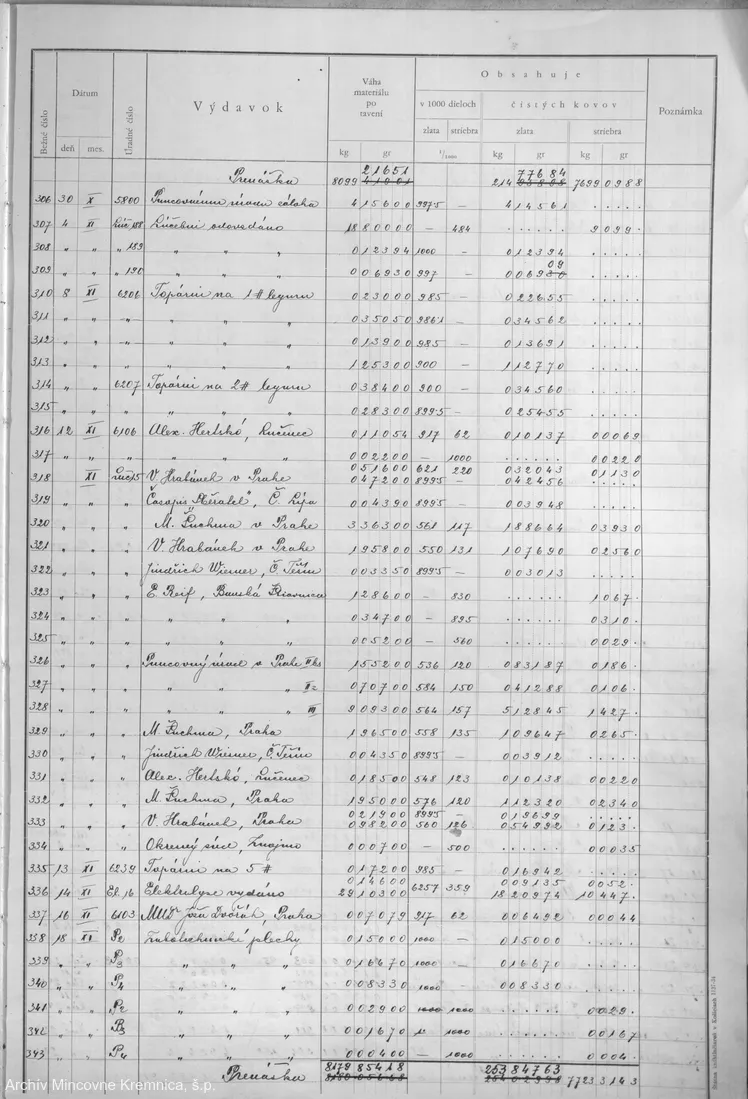 Obsahuje
Dátum
Výdavok
Váha materiálu po tavení
v 1000 dieloch
čistých kovov
Poznámka
Bežné číslo
deň
mes.
Úradné číslo
zlata
striebra
zlata
striebra
kg gr 1/1000 kg gr kg gr
Prenáška 8099 21651 214 77684 7699 0988
306 30 X 5800 Puncovnému úradu záloha 415600 997·5 414561 .....
307 4 XI Lúč 188 Lúčebni odovzdáno 1880000 — 484 ...... 9099.
308 „ „ „ 189 „ „ „ 012394 1000 — 012394 .....
309 „ „ „ 190 „ „ „ 006930 997 — 006909 .....
310 8 XI 6206 Topárni na 1# leguru 023000 985 — 022655 .....
311 „ „ „ „ „ „ 035050 986·1 — 034562 .....
312 „ „ „ „ „ „ 013900 985 — 013691 .....
313 „ „ „ „ „ „ 125300 900 — 112770 .....
314 „ „ 6207 Topárni na 2# leguru 038400 900 — 034560 .....
315 „ „ „ „ „ „ 028300 899·5 — 025455 .....
316 12 XI 6106 Alex. Hertskó, Lučenec 011054 917 62 010137 00069
317 „ „ „ „ „ „ 002200 — 1000 ...... 00220
318 XI Lúč 15 V. Hrabánek v Prahe 051600 621 220 032043 01130
047200 899·5 — 042456
319 „ „ „ Časopis „Stěratel", Č. Lípa 004390 899·5 — 003948 .....
320 „ „ „ M. Šuchma v Prahe 336300 561 117 188664 03930
321 „ „ „ V. Hrabánek v Prahe 195800 550 131 107690 02560
322 „ „ „ Jindřich Wiemer, Č. Těšín 003350 899·5 — 003013 .....
323 „ „ „ E. Reif, Banská Štiavnica 128600 — 830 ...... 1067.
324 „ „ „ „ „ „ 034700 — 895 ...... 0310.
325 „ „ „ „ „ „ 005200 — 560 ...... 0029.
326 „ „ „ Puncovný úrad v Prahe II b 155200 536 120 083187 0186.
327 „ „ „ „ „ „ II c 070700 584 150 041288 0106.
328 „ „ „ „ „ „ III 909300 564 157 512845 1427.
329 „ „ „ M. Šuchma, Praha 196500 558 135 109647 0265.
330 „ „ „ Jindřich Wiemer, Č. Těšín 004350 899·5 — 003912 .....
331 „ „ „ Alex. Hertskó, Lučenec 018500 548 123 010138 00220
332 „ „ „ M. Šuchma, Praha 195000 576 120 112320 02340
333 „ „ „ V. Hrabánek, Praha 021900 899·5 019699 .....
098200 560 126 054992 0123.
334 „ „ „ Okresný súd, Znojmo 000700 — 500 ...... 00035
335 13 XI 6239 Topárni na 5# 017200 985 — 016942 .....
336 14 XI El. 16 Elektrolyze vydáno 014600 009135 0052.
2910300 625·7 359 1820974 10447.
337 16 XI 6103 MUDr Jos. Dvořák, Praha 007079 917 62 006492 00044
338 18 XI P2 Zubotechnické plechy 015000 1000 — 015000 .....
339 „ „ P3 „ „ „ 016670 1000 016670 .....
340 „ „ P4 „ „ „ 008330 1000 008330 .....
341 „ „ P2 „ „ „ 002900 1000 ...... 0029.
342 „ „ P3 „ „ „ 001670 1000 ...... 00167
343 „ „ P4 „ „ „ 000400 — 1000 ...... 0004.
Prenáška 8179 85418 253 84763 7723 3143
Archív Mincovne Kremnica, š.p.